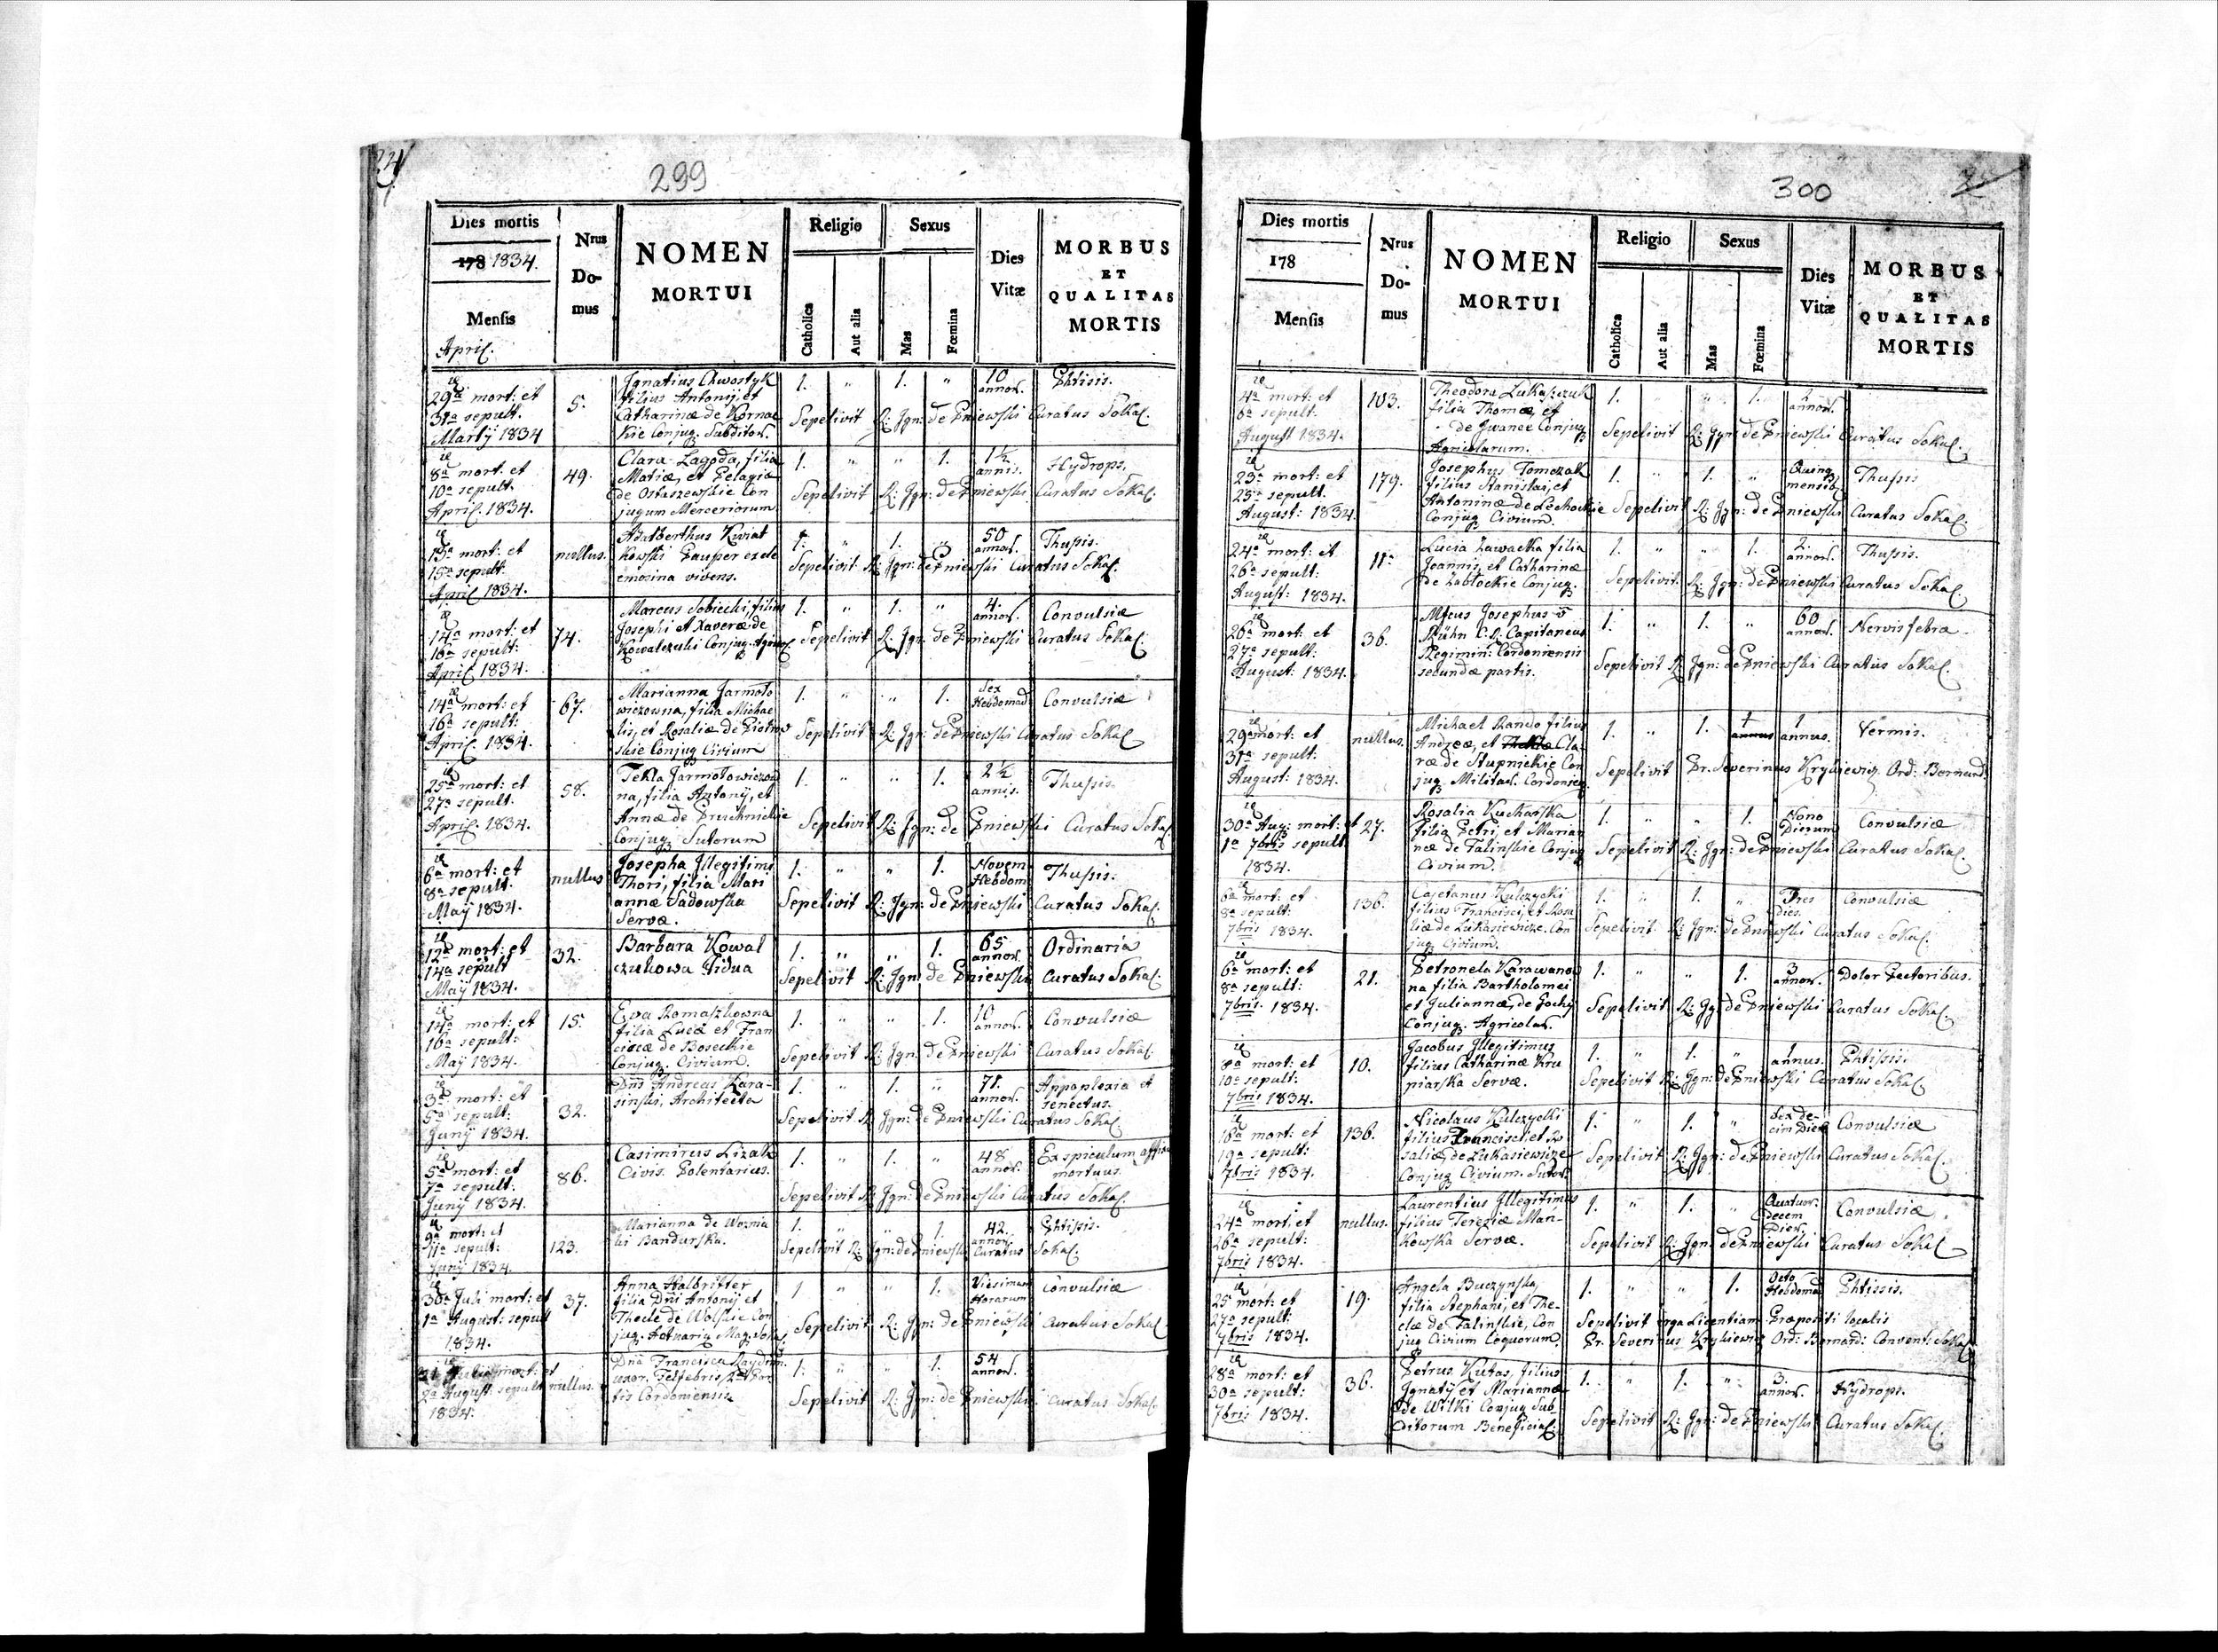 24
299
Dies mortis
178 1834.
Mensis
April.
Nrus
Do-
mus
NOMEN
MORTUI
Religio
Catholica
Aut alia
Sexus
Mas
Fœmina
Dies
Vitæ
MORBUS
ET
QUALITAS
MORTIS
29a mort: et
31a sepult.
Martÿ 1834
5.
Ignatius Chwostyk
filius Antonij, et
Catharinæ de Kornac
kie Conjug. Subditor.
1. " 1. "
10
annor.
Phtisis.
Sepelivit R: Ign: de Pniewski Curatus Sokal.
8a mort: et
10a sepult.
April. 1834.
49.
Clara Lagoda, filia
Matiæ, et Pelagiæ
de Ostaszewskie Con
jugum Merceriorum
1. " " 1.
1½
annis.
Hydrops.
Sepelivit R: Ign: de Pniewski Curatus Sokal.
13a mort: et
15a sepult:
April 1834.
nullus.
Adalberthus Kwiat
kowski Pauper ex ele
emosina vivens.
1. " 1. "
50
annor.
Thussis.
Sepelivit R: Ign: de Pniewski Curatus Sokal.
14a mort: et
16a sepult:
April 1834.
74.
Marcus Sobiecki, filius
Josephi et Xaveræ de
Kowalczuki Conjug. Agricol.
1. " 1. "
4.
annor.
Convulsiæ
Sepelivit R: Ign: de Pniewski Curatus Sokal.
14a mort: et
16a sepult:
April. 1834.
67.
Marianna Jarmoło
wiczowna, filia Michae
lis, et Rosaliæ de Piotrow
skie Conjug Civium
1. " " 1.
Sex
Hebdomad
Convulsiæ
Sepelivit R: Ign: de Pniewski Curatus Sokal.
25a mort: et
27a sepult.
April. 1834.
58.
Tekla Jarmołowiczow
na, filia Antonij, et
Annæ de Pruchnickie
Conjug. Sutorum
1. " " 1.
2½
annis.
Thussis.
Sepelivit R: Ign: de Pniewski Curatus Sokal
6a mort: et
8a sepult.
Maÿ 1834.
nullus
Josepha Illegitimi
Thori, filia Mari
annæ Sadowska
Servæ.
1. " " 1.
Novem
Hebdom
Thussis.
Sepelivit R: Ign: de Pniewski Curatus Sokal.
12a mort: et
14a sepult
Maÿ 1834.
32.
Barbara Kowal
czukowa Vidua
1. " " 1.
65
annor.
Ordinaria
Sepelivit R: Ign: de Pniewski Curatus Sokal.
14a mort: et
16a sepult:
Maÿ 1834.
15.
Eva Romaszkowna
filia Lucæ et Fran
ciscæ de Boseckie
Conjug. Civium.
1. " " 1.
10
annor.
Convulsiæ
Sepelivit R: Ign: de Pniewski Curatus Sokal.
3a mort: et
5a sepult:
Junÿ 1834.
32.
Dns Andreas Kara-
sinski, Architecta
1. " 1. "
71.
annor.
Appoplexia et
senectus.
Sepelivit R: Ign: de Pniewski Curatus Sokal.
5a mort: et
7a sepult:
Junÿ 1834.
86.
Casimirus Lizak
Civis. Polentarius.
1. " 1. "
48
annor.
Ex spiculum
mortuus.
Sepelivit R: Ign: de Pniewski Curatus Sokal.
9a mort: et
11a sepult:
Junÿ 1834.
123.
Marianna de Woznia
ki Bandurska.
1. " " 1.
42.
annor.
Phtisis.
Sepelivit R: Ign: de Pniewski Curatus Sokal.
30a Juli mort: et
1a August: sepult
1834.
37.
Anna Halbritter
filia Dni Antonij et
Theclæ de Wolskie Con
jug. Actuarij Mag. Sokal.
1 " " 1.
Viesimum
Horarum
Convulsiæ
Sepelivit R: Ign: de Pniewski Curatus Sokal
31 Juli mort: et
2a August: sepult
1834.
nullus.
Dna Francisca
uxor.
tis Cordoniensis
1. " " 1.
54
annor.
Sepelivit R: Ign: de Pniewski Curatus Sokal.
300
Dies mortis
178
Mensis
Nrus
Do-
mus
NOMEN
MORTUI
Religio
Catholica
Aut alia
Sexus
Mas
Fœmina
Dies
Vitæ
MORBUS
ET
QUALITAS
MORTIS
4a mort: et
6a sepult.
August 1834.
103.
Theodora Lukaszczuk
filia Thomæ, et
de Iwance Conjug
Agricolarum.
1. " " 1.
2
annor.
Sepelivit R: Ign: de Pniewski Curatus Sokal.
23a mort: et
25a sepult.
August: 1834.
179.
Josephus Tomczak
filius Stanislai, et
Antoninæ de Lechockie
Conjug Civium.
1. " 1. "
Quinq
mensib.
Thussis
Sepelivit R: Ign: de Pniewski Curatus Sokal.
24a mort: et
26a sepult:
August: 1834.
11a
Lucia Zawacka filia
Joannis, et Catharinæ
de Zabłockie Conjug.
1. " " 1.
2
annor.
Thussis.
Sepelivit R: Ign: de Pniewski Curatus Sokal.
26a mort: et
27a sepult:
August: 1834.
36.
Mfcus Josephus v
Kühn C: R: Capitaneus
Regimin: Cordoniensis
secundæ partis.
1. " 1. "
60
annor.
Nervis febra
Sepelivit R: Ign: de Pniewski Curatus Sokal.
29a mort: et
31a sepult:
August: 1834.
nullus.
Michael Rando filius
Andreæ, et Theklæ Cla-
ræ de Stupnickie Con
jug. Militar. Cordonien
1. " 1.
1
annus.
Vermis.
Sepelivit Pr. Severinus Krykiewicz Ord: Bernard:
30a Aug: mort: et
1a 7bris sepult
1834.
27.
Rosalia Kucharska
filia Petri, et Marian
næ de Talinskie Conjug
Civium.
1. " " 1.
Nono
Dierum
Convulsiæ
Sepelivit R: Ign: de Pniewski Curatus Sokal.
6a mort: et
8a sepult:
7bris 1834.
136.
Cajetanus Kulczycki
filius Francisci, et Rosa
liæ de Lukasiewicze. Con
jug Civium.
1. " 1. "
Tres
dies.
Convulsiæ
Sepelivit R: Ign: de Pniewski Curatus Sokal.
6a mort: et
8a sepult:
7bris. 1834.
21.
Petronela Karawanow
na filia Bartholomei
et Juliannæ, de Gochy
Conjug. Agricolar.
1. " " 1.
3
annor.
Dolor Pectoribus.
Sepelivit R: Ig: de Pniewski Curatus Sokal.
8a mort: et
10a sepult:
7bris 1834.
10.
Jacobus Illegitimus
filius Catharinæ Kru
piarska Servæ.
1. " 1. "
1
annus.
Phtissis.
Sepelivit R: Ign: de Pniewski Curatus Sokal.
18a mort: et
19a sepult:
7bris 1834.
136.
Nicolaus Kulczycki
filius Francisci, et Ro
saliæ de Lukasiewicze
Conjug Civium. Sutor
1. " 1. "
Sex de-
cim Dies
Convulsiæ
Sepelivit R: Ign: de Pniewski Curatus Sokal.
24a mort: et
26a sepult:
7bris 1834.
nullus.
Laurentius Illegitimus
filius Tereziæ Man-
kowska Servæ.
1. " 1. "
Quatuor.
decem
Dier.
Convulsiæ
Sepelivit R: Ign: de Pniewski Curatus Sokal
25 mort: et
27a sepult:
7bris 1834.
19.
Angela Buczynska,
filia Stephani, et The-
clæ de Talinskie, Con
jug Civium Coquorum.
1. " " 1.
Octo
Hebdomad
Phtissis.
Sepelivit erga Licentiam Præpositi localis
Pr. Severinus Krykiewicz Ord: Bernard: Convent: Sokal.
28a mort: et
30a sepult:
7bris 1834.
36.
Petrus Kutas, filius
Ignatÿ et Mariannæ
de Wilki Conjug Sub
ditorum Beneficial.
1. " 1. "
3.
annor.
Hydrops.
Sepelivit R: Ign: de Pniewski Curatus Sokal.